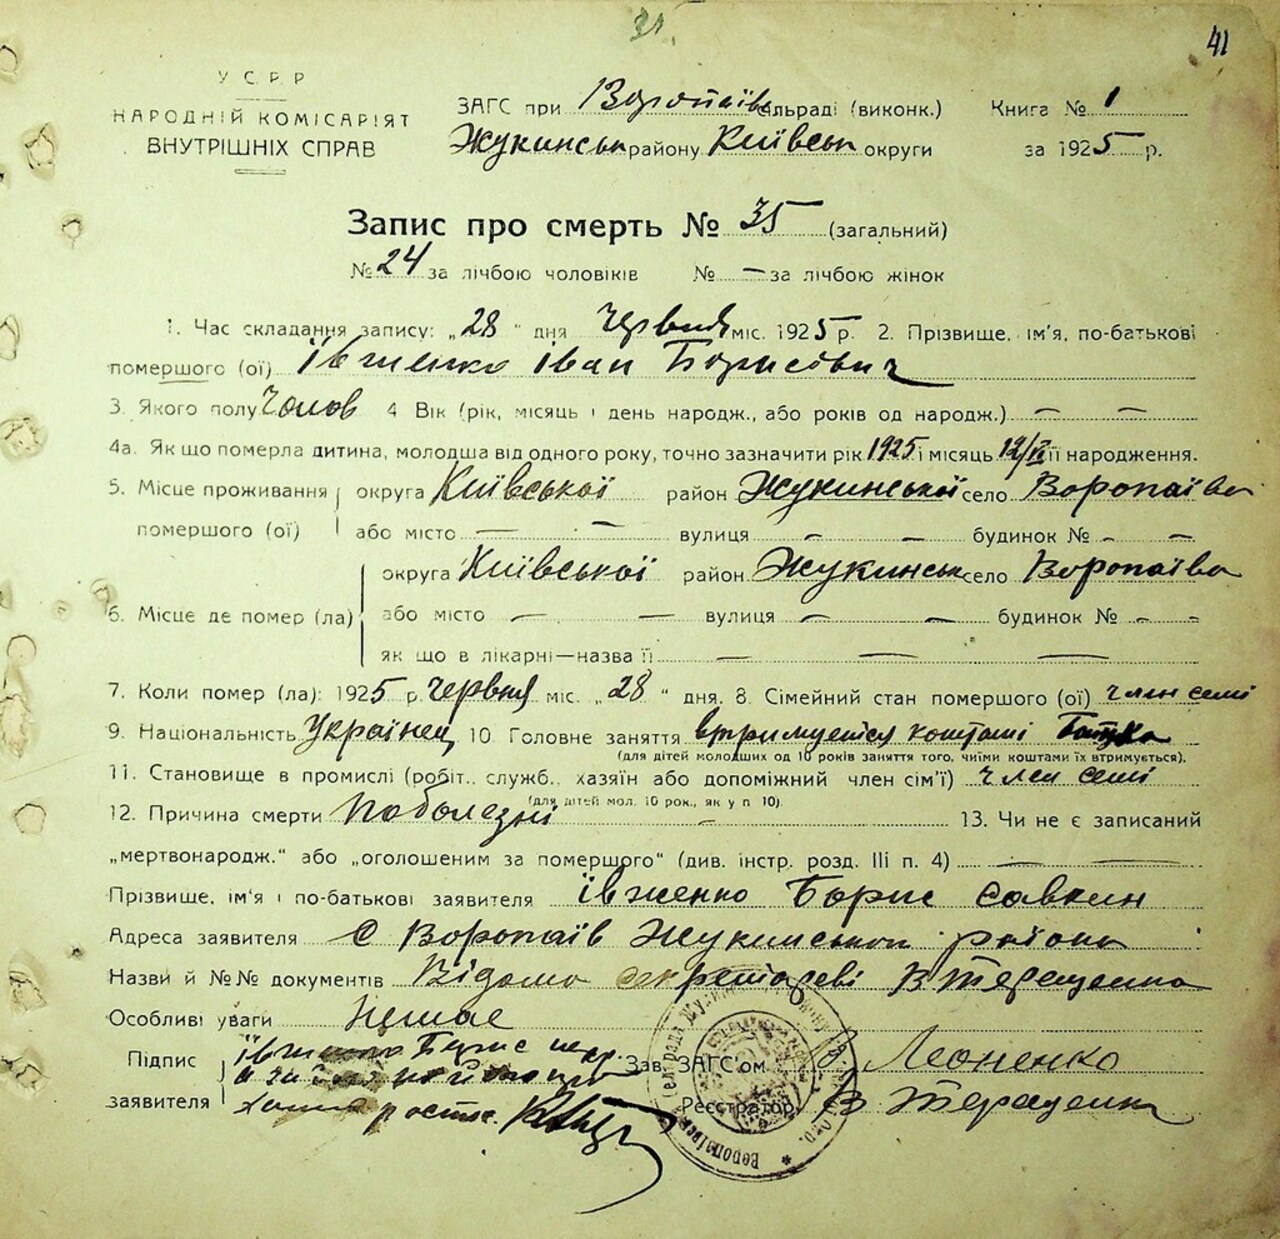 31.
41
У С Р Р
НАРОДНІЙ КОМІСАРІЯТ
ВНУТРІШНІХ СПРАВ
ЗАГС при Воропаївс сільраді (виконк.) Книга № 1
Жукинськ району Київськ округи за 1925 р.
Запис про смерть № 35 (загальний)
№ 24 за лічбою чоловіків № — за лічбою жінок
1. Час складання запису: „28“ дня Червня міс. 1925 р. 2. Прізвище, ім'я, по-батькові
помершого (ої) Івженко Іван Борисович
3. Якого полу Чолов 4 Вік (рік, місяць і день народж., або років од народж.) — —
4а. Як що померла дитина, молодша від одного року, точно зазначити рік 1925 і місяць 12/VI її народження.
5. Місце проживання округа Київської район Жукинської село Воропаїва
помершого (ої) або місто — — вулиця — — будинок № — —
округа Київської район Жукинськ село Воропаїва
6. Місце де помер (ла) або місто — — вулиця — — будинок № — —
як що в лікарні—назва її — — —
7. Коли помер (ла): 1925 р. Червня міс. „28“ дня. 8. Сімейний стан помершого (ої) член семі
9. Національність Українец 10. Головне заняття втримуется коштамі Батька
(для дітей молодших од 10 років заняття того, чиїми коштами їх втримується).
11. Становище в промислі (робіт., служб., хазяїн або допоміжний член сім'ї) член семі
(для дітей мол. 10 рок., як у п 10).
12. Причина смерти По болезні — 13. Чи не є записаний
„мертвонародж.“ або „оголошеним за помершого“ (див. інстр. розд. III п. 4) — —
Прізвище, ім'я і по-батькові заявителя Івженко Борис Савкин
Адреса заявителя С Воропаїв Жукинського району
Назви й №№ документів Відомо секретареві В Терещенко
Особливі уваги Немае
Підпис Івженко Борис
заявителя
Зав. ЗАГС'ом В Леоненко
Реєстратор В Терещенко